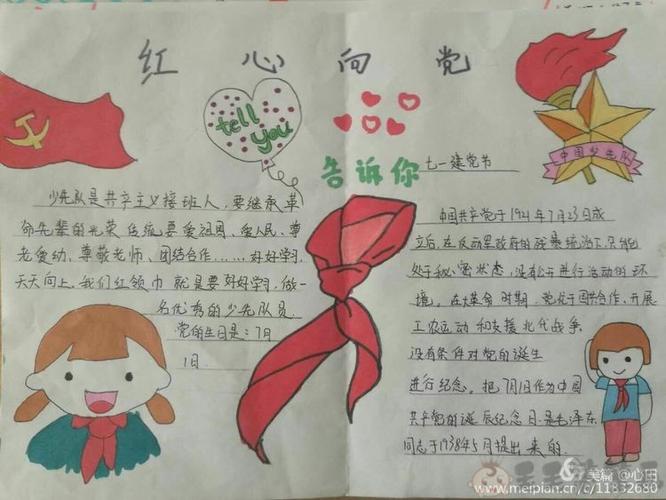 红心向党
tell
you
告诉你
七一建党节
中国少先队
少先队是共产主义接班人，要继承革
命先辈的光荣传统要爱祖国，爱人民、尊
老爱幼、尊敬老师、团结合作……好好学习
天天向上，我们红领巾就是要好好学习，做一
名优秀的少先队员
党的生日是：7月
1日
中国共产党于1921年7月23日成
立后，在反动军政府的残暴统治下，只能
处于秘密状态，没有公开进行活动的环
境。在大革命时期，党忙于国共合作、开展
工农运动和支援北伐战争
没有条件对党的诞生
进行纪念。把7月1日作为中国
共产党的诞辰纪念日是毛泽东
同志于1938年5月提出来的
美篇 @心田
www.meipian.cn/c/11832680